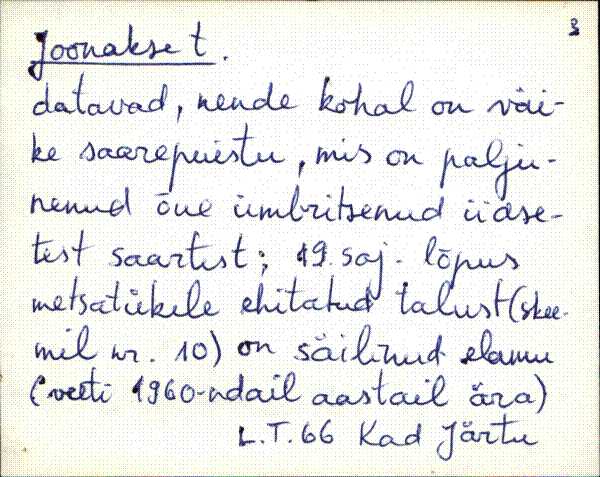 3
Joonakse t.
datavad, nende kohal on väi-
ke saarepuistu, mis on palju-
nenud õue ümbritsenud üase-
test saartest; 19. saj. lõpus
metsatükile ehitatud talust (skee-
mil nr. 10) on säilinud elamu
(veeti 1960-ndail aastail ära)
L.T. 66 Kad Järtu